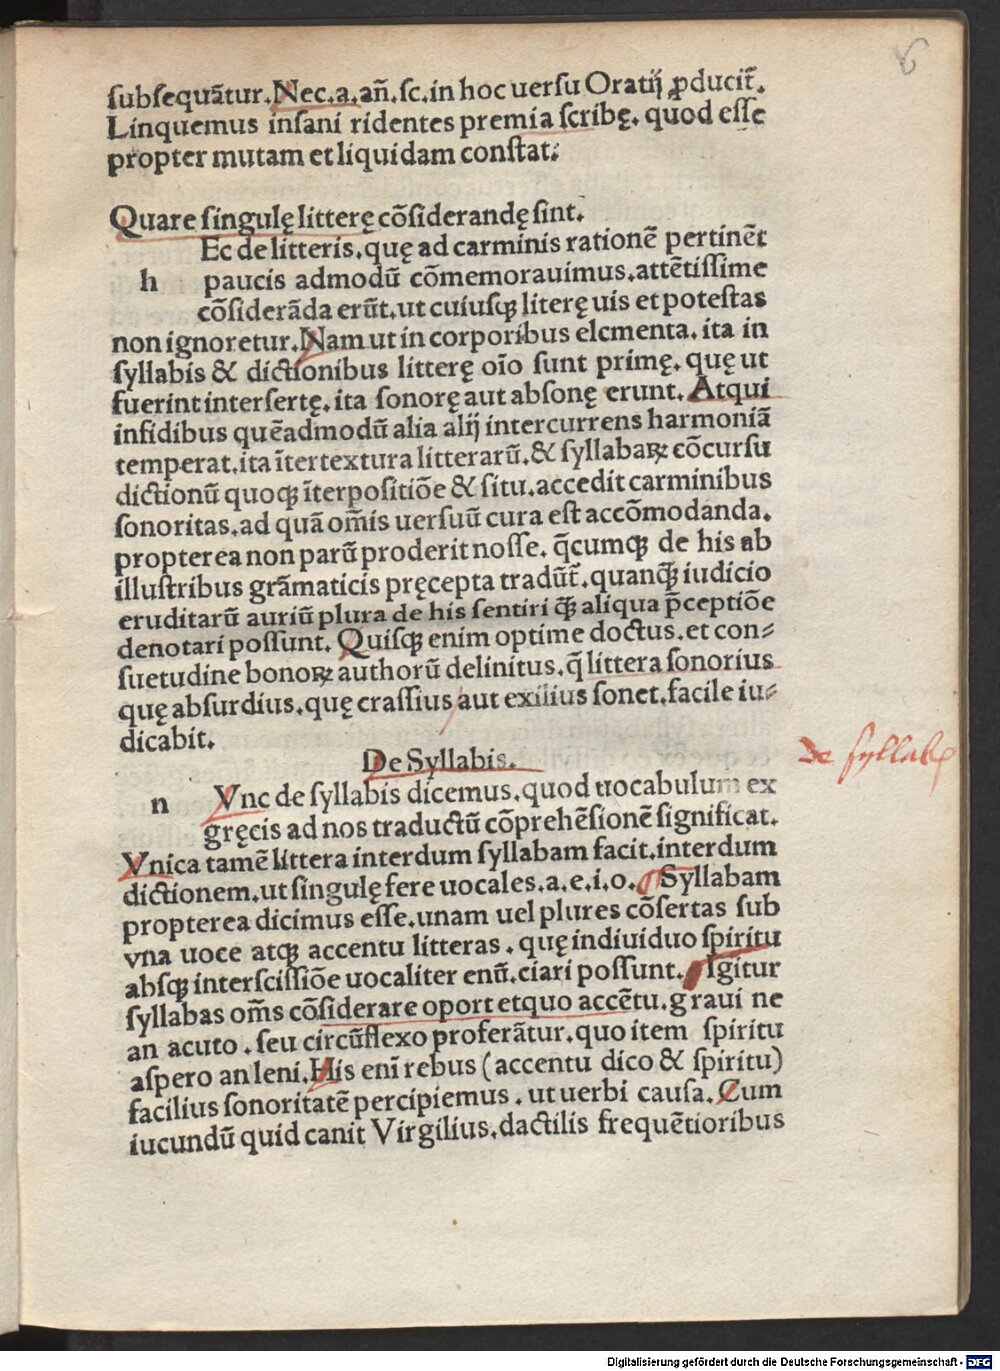 6
subsequãtur. Nec. a. añ. sc. in hoc uersu Oratij ꝓducit̃.
Linquemus insani ridentes premia scribę. quod esse
propter mutam et liquidam constat:
Quare singulę litterę cõsiderandę sint.
Ec de litteris. quę ad carminis rationẽ pertinẽt
h paucis admodũ cõmemorauimus. attẽtissime
cõsiderãda erũt. ut cuiusqꝫ literę uis et potestas
non ignoretur. Nam ut in corporibus elementa. ita in
syllabis & dictionibus litterę oĩo sunt primę. quę ut
fuerint intersertę. ita sonorę aut absonę erunt. Atqui
infidibus quẽadmodũ alia alij intercurrens harmoniã
temperat. ita ĩtertextura litterarũ. & syllabaꝝ cõcursu
dictionũ quoqꝫ ĩterpositiõe & situ. accedit carminibus
sonoritas. ad quã om̃is uersuũ cura est accõmodanda.
propterea non parũ proderit nosse. q̃cumqꝫ de his ab
illustribus grãmaticis pręcepta tradũt̃. quanqꝫ̃ iudicio
eruditarũ auriũ plura de his sentiri qꝫ̃ aliqua p̃ceptiõe
denotari possunt. Quisqꝫ enim optime doctus. et con⸗
suetudine bonoꝝ authorũ delinitus. q̃ littera sonorius
quę absurdius. quę crassius aut exilius sonet. facile iu⸗
dicabit.
De Syllabis.
De syllabꝭ
n Vnc de syllabis dicemus. quod uocabulum ex
gręcis ad nos traductũ cõprehẽsionẽ significat.
Vnica tamẽ littera interdum syllabam facit. interdum
dictionem. ut singulę fere uocales. a. e. i. o. ¶ Syllabam
propterea dicimus esse. unam uel plures cõsertas sub
vna uoce atqꝫ accentu litteras. quę indiuiduo spiritu
absqꝫ interscissiõe uocaliter enũ. ciari possunt. Igitur
syllabas om̃s cõsiderare oport etquo accẽtu. graui ne
an acuto. seu circũflexo proferãtur. quo item spiritu
aspero an leni. His eni͂ rebus (accentu dico & spiritu)
facilius sonoritatẽ percipiemus. ut uerbi causa. Cum
iucundũ quid canit Virgilius. dactilis frequẽtioribus
Digitalisierung gefördert durch die Deutsche Forschungsgemeinschaft - DFG